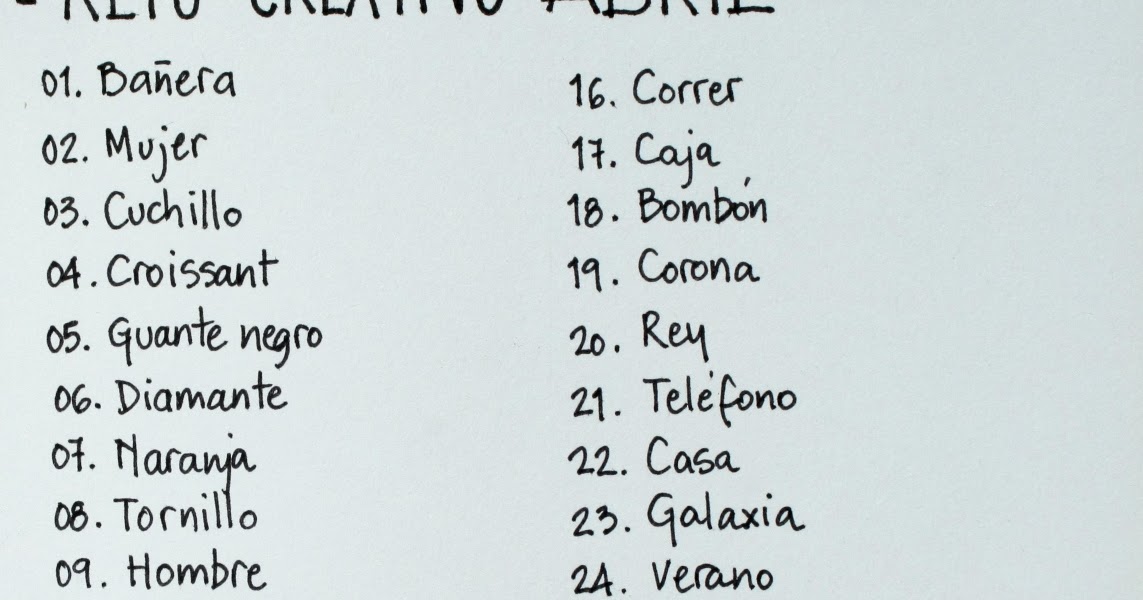 - RETO CREATIVO ABRIL
01. Bañera
02. Mujer
03. Cuchillo
04. Croissant
05. Guante negro
06. Diamante
07. Naranja
08. Tornillo
09. Hombre
16. Correr
17. Caja
18. Bombón
19. Corona
20. Rey
21. Teléfono
22. Casa
23. Galaxia
24. Verano